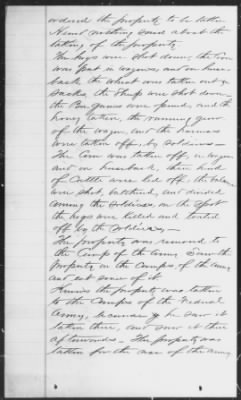 ordered the property to be taken
Heard nothing said about the
taking of the property.
The hogs were shot down, the Corn
was put in wagons, and on horse
back, the wheat was taken out in
sacks, the Sheep were shot down
the Bee gums were opened, and the
honey taken, the running gear
of the wagon, and the harness
were taken off, by soldiers —
The Corn was taken off, in wagons
and on horseback, the head
of Cattle were led off, the
were shot, butchered, and divided
among the soldiers, on the spot
the hogs were killed and toted
off by the soldiers —
The property was removed to
the Camp of the Army, Saw the
property in the Camps, of the Army
and eat some of it.
Knows the property was taken
to the Camps of the Federal
Army, because he saw it
taken there, and saw it there
afterwards — The property was
taken for the use of the army